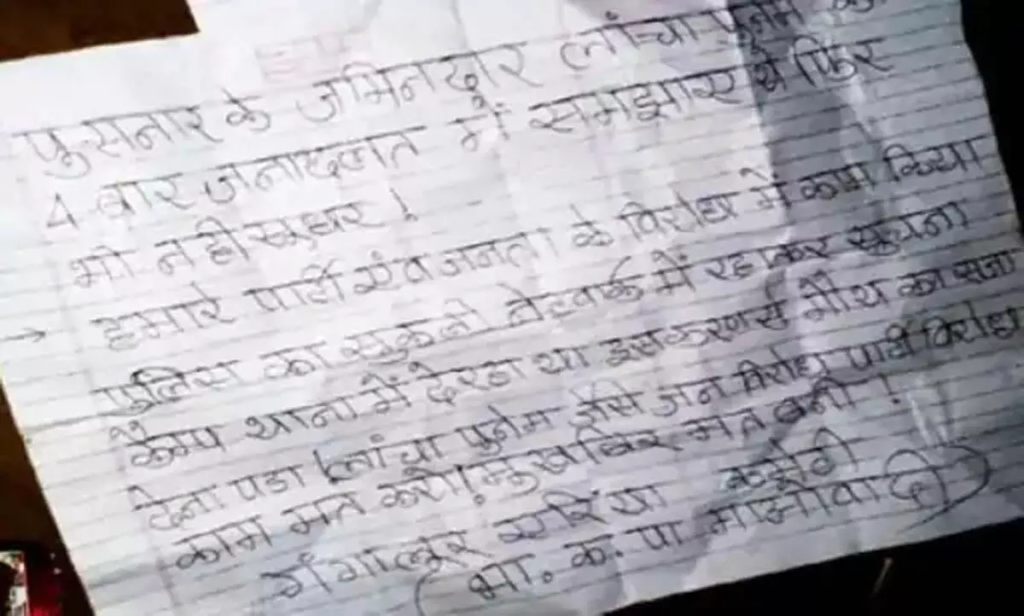 पुसनार के जमिनदार लांचा पुनेम को
4 बार जनादलात में समझाए थे फिर
भी नही सुधर !
→ हमारे पार्टी एंव जनता के विरोध में काम किया
पुलिस का नेटवर्क में रहाकर सूचना
कैम्प थाना में दे रहा था इसकरण मौथ का सजा
देना पडा लांचा पुनेम जैसे जन विरोध पार्टी विरोध
काम मत करो! मुखबिर मत बनो !
गंगालूर एरिया कमेटी
(भा. क. पा माओवादी)